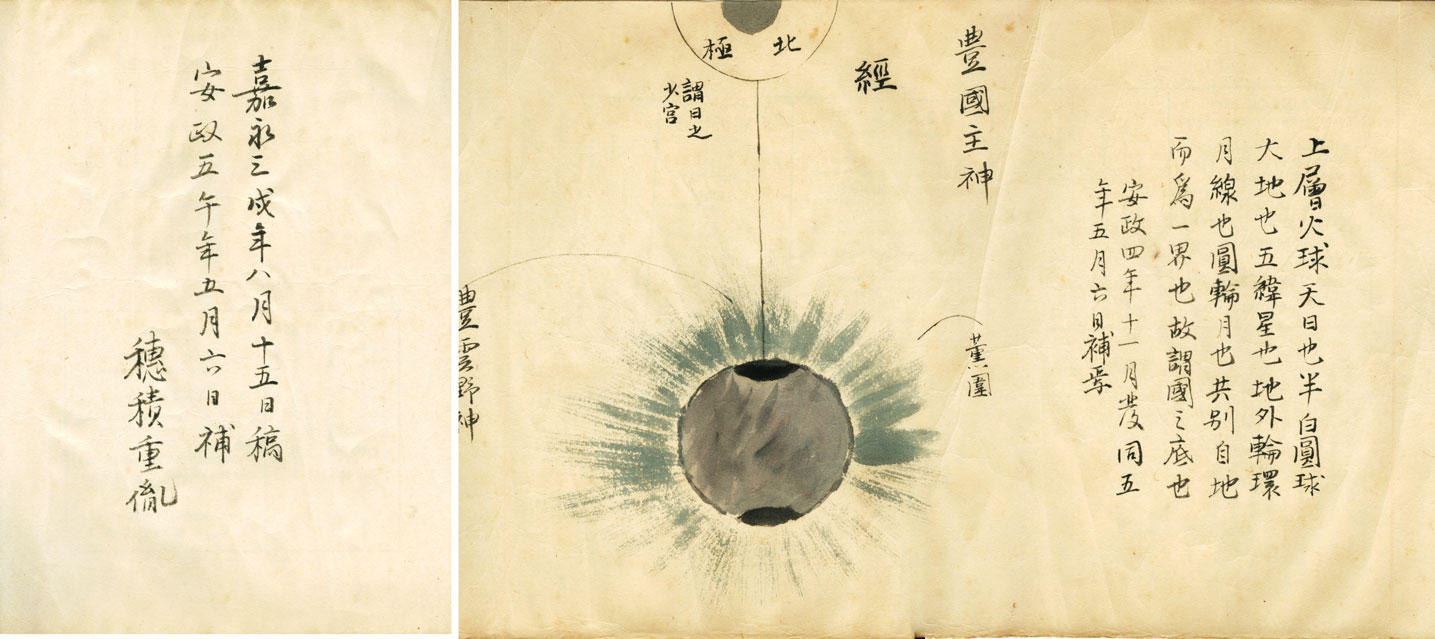 上層火球天日也半白圓球
大地也五緯星也地外輪環
月線也圓輪月也共別自地
而爲一界也故謂國之底也
安政四年十一月發同五
年五月六日補
豊國主神
薫圍
經
北極
謂日之
少宮
豊雲野神
嘉永三戌年八月十五日稿
安政五午年五月六日補
穗積重胤